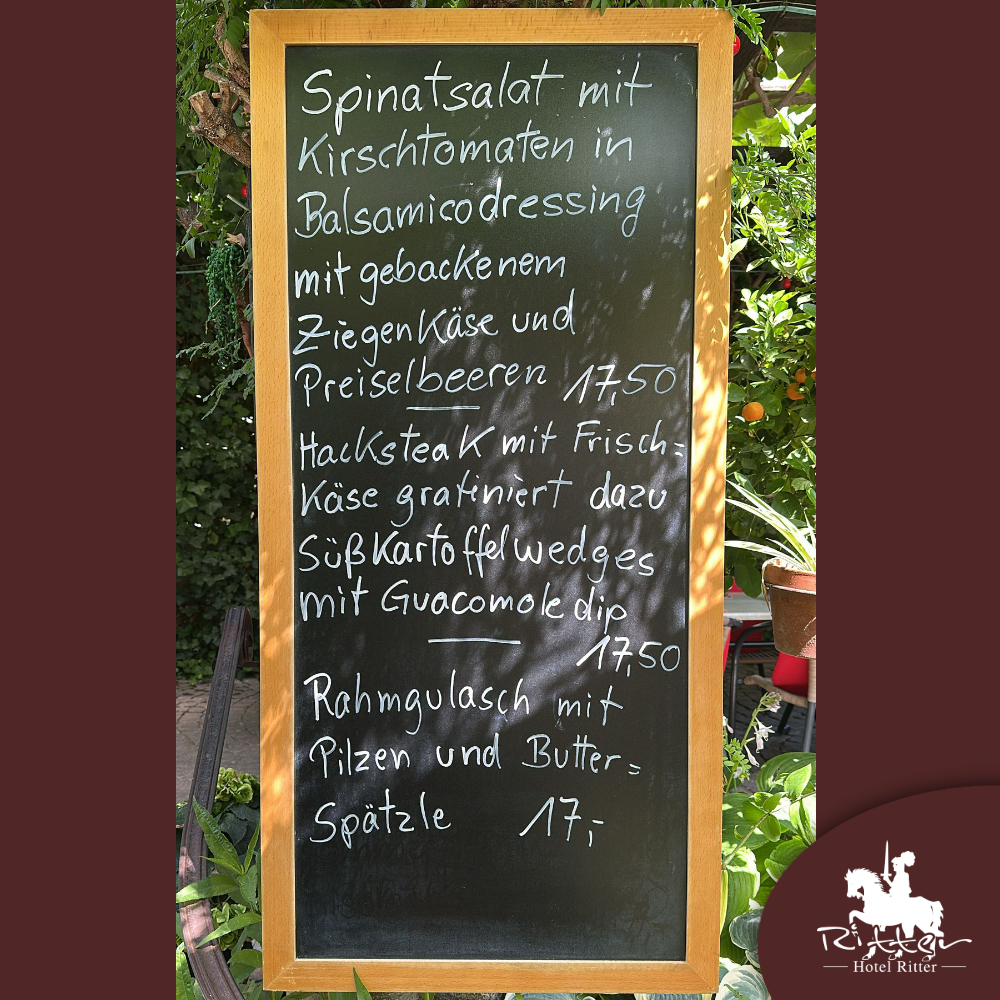 Spinatsalat mit
Kirschtomaten in
Balsamicodressing
mit gebackenem
Ziegenkäse und
Preiselbeeren 17,50
Hacksteak mit Frisch=
Käse gratiniert dazu
Süßkartoffelwedges
mit Guacomole dip
17,50
Rahmgulasch mit
Pilzen und Butter=
Spätzle 17,-
Ritter
Hotel Ritter